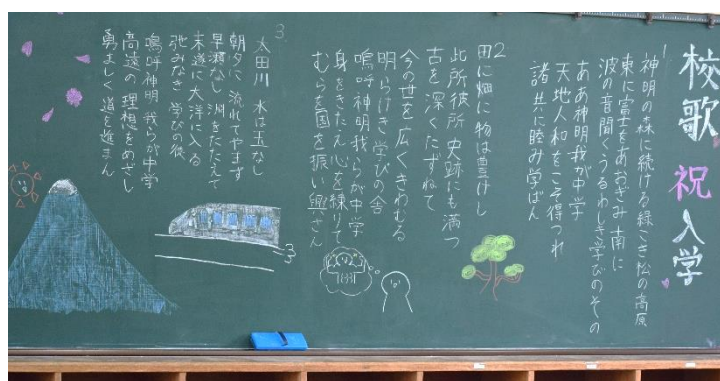 校歌 祝 入学
1
神明の森に続ける緑こき松の高原
東に富士をあおぎみ南に
波の音聞くうるわしき学びのその
ああ神明我が中学
天地人和をこそ得つれ
諸共に睦み学ばん
2
田に畑に物は豊けし
此所彼所史跡にも満つ
古を深くたずねて
今の世を広くきわむる
明らけき学びの舎
嗚呼神明我らが中学
身をきたえ心を練りて
むらを国を振い興さん
3.
太田川 水は玉なし
朝夕に 流れてやまず
早瀬なし 渕をたたえて
末遂に大洋に入る
弛みなき 学びの後
嗚呼神明 我らが中学
高遠の 理想をめざし
勇ましく道を進まん